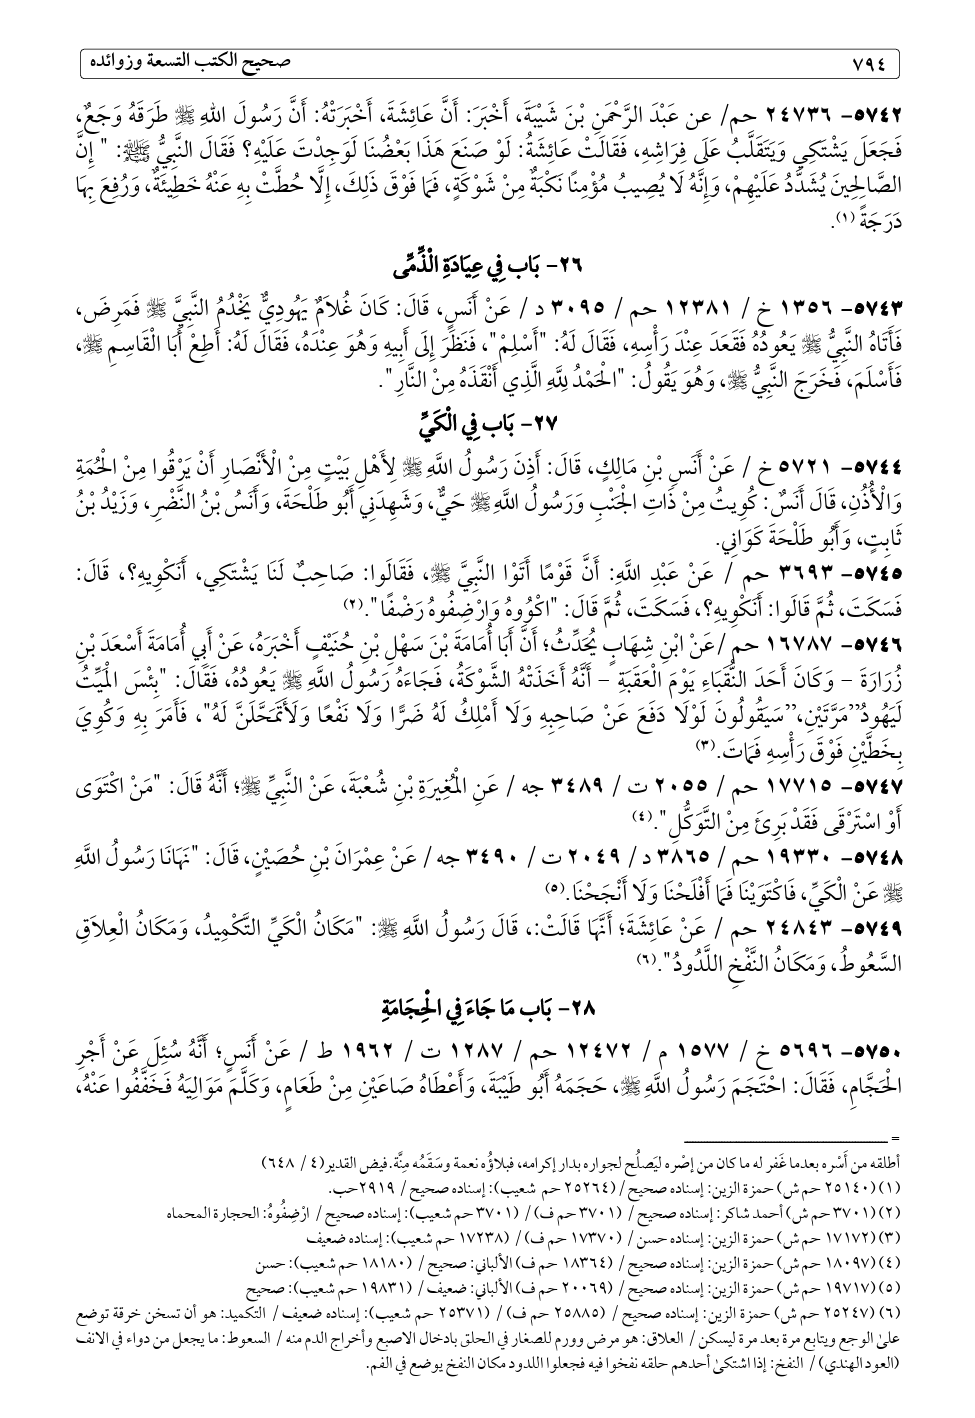 ٧٩٤
صحيح الكتب التسعة وزوائده
٥٧٤٢- ٢٤٧٣٦ حم/ عن عَبْدَ الرَّحْمَنِ بْنَ شَيْبَةَ، أَخْبَرَ: أَنَّ عَائِشَةَ، أَخْبَرَتْهُ: أَنَّ رَسُولَ اللهِ ﷺ طَرَقَهُ وَجَعٌ،
فَجَعَلَ يَشْتَكِي وَيَتَقَلَّبُ عَلَى فِرَاشِهِ، فَقَالَتْ عَائِشَةُ: لَوْ صَنَعَ هَذَا بَعْضُنَا لَوَجِدْتَ عَلَيْهِ؟ فَقَالَ النَّبِيُّ ﷺ: " إِنَّ
الصَّالِحِينَ يُشَدَّدُ عَلَيْهِمْ، وَإِنَّهُ لَا يُصِيبُ مُؤْمِنًا نَكْبَةٌ مِنْ شَوْكَةٍ، فَمَا فَوْقَ ذَلِكَ، إِلَّا حُطَّتْ بِهِ عَنْهُ خَطِيئَةٌ، وَرُفِعَ بِهَا
دَرَجَةً (١).
٢٦- بَاب فِي عِيَادَةِ الْذِّمِّى
٥٧٤٣- ١٣٥٦ خ / ١٢٣٨١ حم / ٣٠٩٥ د / عَنْ أَنَسٍ، قَالَ: كَانَ غُلَامٌ يَهُودِيٌّ يَخْدُمُ النَّبِيَّ ﷺ فَمَرِضَ،
فَأَتَاهُ النَّبِيُّ ﷺ يَعُودُهُ فَقَعَدَ عِنْدَ رَأْسِهِ، فَقَالَ لَهُ: "أَسْلِمْ"، فَنَظَرَ إِلَى أَبِيهِ وَهُوَ عِنْدَهُ، فَقَالَ لَهُ: أَطِعْ أَبَا الْقَاسِمِ ﷺ،
فَأَسْلَمَ، فَخَرَجَ النَّبِيُّ ﷺ، وَهُوَ يَقُولُ: "الْحَمْدُ لِلَّهِ الَّذِي أَنْقَذَهُ مِنْ النَّارِ".
٢٧- بَاب فِي الْكَيِّ
٥٧٤٤- ٥٧٢١ خ / عَنْ أَنَسِ بْنِ مَالِكٍ، قَالَ: أَذِنَ رَسُولُ اللَّهِ ﷺ لِأَهْلِ بَيْتٍ مِنْ الْأَنْصَارِ أَنْ يَرْقُوا مِنْ الْحُمَةِ
وَالْأُذُنِ، قَالَ أَنَسٌ: كُوِيتُ مِنْ ذَاتِ الْجَنْبِ وَرَسُولُ اللَّهِ ﷺ حَيٌّ، وَشَهِدَنِي أَبُو طَلْحَةَ، وَأَنَسُ بْنُ النَّضْرِ، وَزَيْدُ بْنُ
ثَابِتٍ، وَأَبُو طَلْحَةَ كَوَانِي.
٥٧٤٥- ٣٦٩٣ حم / عَنْ عَبْدِ اللَّهِ: أَنَّ قَوْمًا أَتَوْا النَّبِيَّ ﷺ، فَقَالُوا: صَاحِبٌ لَنَا يَشْتَكِي، أَنَكْوِيهِ؟، قَالَ:
فَسَكَتَ، ثُمَّ قَالُوا: أَنَكْوِيهِ؟، فَسَكَتَ، ثُمَّ قَالَ: "اكْوُوهُ وَارْضِفُوهُ رَضْفًا".(٢)
٥٧٤٦- ١٦٧٨٧ حم /عَنْ ابْنِ شِهَابٍ يُحَدِّثُ؛ أَنَّ أَبَا أُمَامَةَ بْنَ سَهْلِ بْنِ حُنَيْفٍ أَخْبَرَهُ، عَنْ أَبِي أُمَامَةَ أَسْعَدَ بْنِ
زُرَارَةَ – وَكَانَ أَحَدَ النُّقَبَاءِ يَوْمَ الْعَقَبَةِ – أَنَّهُ أَخَذَتْهُ الشَّوْكَةُ، فَجَاءَهُ رَسُولُ اللَّهِ ﷺ يَعُودُهُ، فَقَالَ: "بِئْسَ الْمَيِّتُ
لَيَهُودُ"مَرَّتَيْنِ،"سَيَقُولُونَ لَوْلَا دَفَعَ عَنْ صَاحِبِهِ وَلَا أَمْلِكُ لَهُ ضَرًّا وَلَا نَفْعًا وَلَأَتَمَحَّلَنَّ لَهُ"، فَأَمَرَ بِهِ وَكُوِيَ
بِخَطَّيْنِ فَوْقَ رَأْسِهِ فَمَاتَ.(٣)
٥٧٤٧- ١٧٧١٥ حم / ٢٠٥٥ ت / ٣٤٨٩ جه / عَنِ الْمُغِيرَةِ بْنِ شُعْبَةَ، عَنْ النَّبِيِّ ﷺ؛ أَنَّهُ قَالَ: "مَنْ اكْتَوَى
أَوْ اسْتَرْقَى فَقَدْ بَرِئَ مِنْ التَّوَكُّلِ".(٤)
٥٧٤٨- ١٩٣٣٠ حم / ٣٨٦٥ د/ ٢٠٤٩ ت/ ٣٤٩٠ جه / عَنْ عِمْرَانَ بْنِ حُصَيْنٍ، قَالَ: "نَهَانَا رَسُولُ اللَّهِ
ﷺ عَنْ الْكَيِّ، فَاكْتَوَيْنَا فَمَا أَفْلَحْنَا وَلَا أَنْجَحْنَا.(٥)
٥٧٤٩- ٢٤٨٤٣ حم / عَنْ عَائِشَةَ؛ أَنَّهَا قَالَتْ:، قَالَ رَسُولُ اللَّهِ ﷺ: "مَكَانُ الْكَيِّ التَّكْمِيدُ، وَمَكَانُ الْعِلَاقِ
السَّعُوطُ، وَمَكَانُ النَّفْخِ اللَّدُودُ".(٦)
٢٨- بَاب مَا جَاءَ فِي الْحِجَامَةِ
٥٧٥٠- ٥٦٩٦ خ / ١٥٧٧ م / ١٢٤٧٢ حم / ١٢٨٧ ت / ١٩٦٢ ط / عَنْ أَنَسٍ؛ أَنَّهُ سُئِلَ عَنْ أَجْرِ
الْحَجَّامِ، فَقَالَ: احْتَجَمَ رَسُولُ اللَّهِ ﷺ، حَجَمَهُ أَبُو طَيْبَةَ، وَأَعْطَاهُ صَاعَيْنِ مِنْ طَعَامٍ، وَكَلَّمَ مَوَالِيَهُ فَخَفَّفُوا عَنْهُ،
=
أطلقه من أَسْره بعدما غَفر له ما كان من إصْره ليَصلُح لجواره بدار إكرامه، فبلاؤُه نعمة وسَقَمُه مِنَّة.فيض القدير(٤/ ٦٤٨)
(١) (٢٥١٤٠ حم ش) حمزة الزين: إسناده صحيح/ (٢٥٢٦٤ حم شعيب): إسناده صحيح/ ٢٩١٩حب.
(٢) (٣٧٠١ حم ش) أحمد شاكر: إسناده صحيح/ (٣٧٠١ حم ف)/ (٣٧٠١ حم شعيب): إسناده صحيح/ ارْضِفُوهُ: الحجارة المحماه
(٣) (١٧١٧٢ حم ش) حمزة الزين: إسناده حسن/ (١٧٣٧٠ حم ف)/ (١٧٢٣٨ حم شعيب): إسناده ضعيف
(٤) (١٨٠٩٧ حم ش) حمزة الزين: إسناده صحيح/ (١٨٣٦٤ حم ف) الألباني: صحيح/ (١٨١٨٠ حم شعيب): حسن
(٥) (١٩٧١٧ حم ش) حمزة الزين: إسناده صحيح/ (٢٠٠٦٩ حم ف) الألباني: ضعيف/ (١٩٨٣١ حم شعيب): صحيح
(٦) (٢٥٢٤٧ حم ش) حمزة الزين: إسناده صحيح/ (٢٥٨٨٥ حم ف)/ (٢٥٣٧١ حم شعيب): إسناده ضعيف/ التكميد: هو أن تسخن خرقة توضع
على الوجع ويتابع مرة بعد مرة ليسكن/ العلاق: هو مرض وورم للصغار في الحلق بادخال الاصبع وأخراج الدم منه/ السعوط: ما يجعل من دواء في الانف
(العود الهندي)/ النفخ: إذا اشتكى أحدهم حلقه نفخوا فيه فجعلوا اللدود مكان النفخ يوضع في الفم.